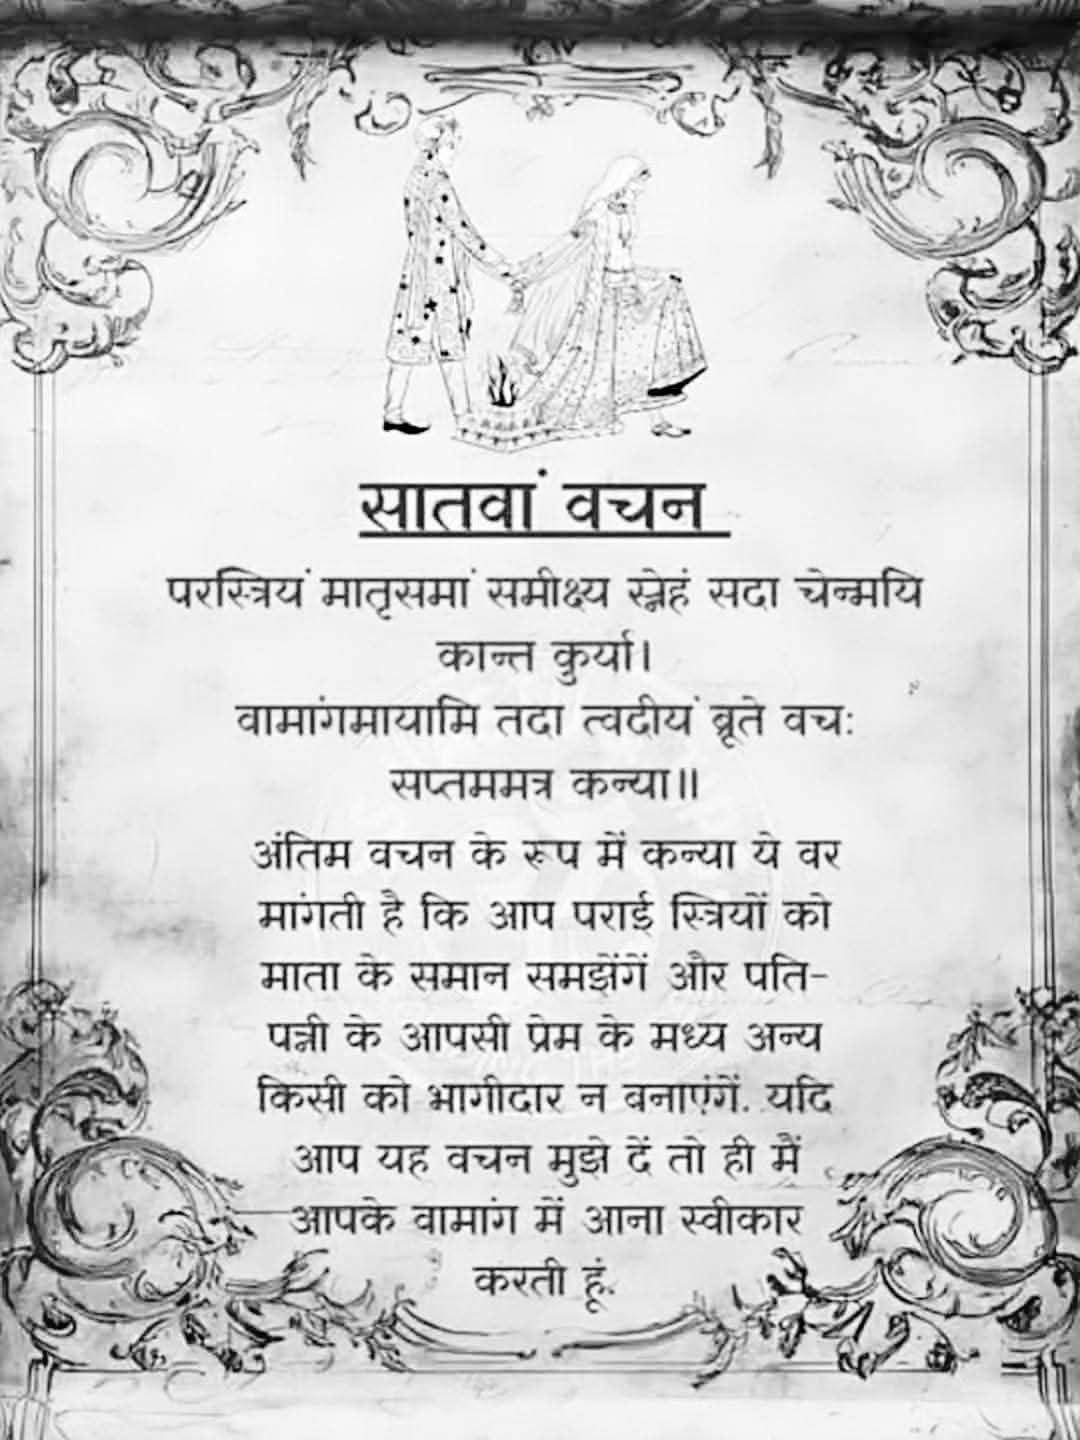 सातवां वचन
परस्त्रियं मातृसमां समीक्ष्य स्नेहं सदा चेन्मयि
कान्त कुर्या।
वामांगमायामि तदा त्वदीयं ब्रूते वचः
सप्तममत्र कन्या॥
अंतिम वचन के रूप में कन्या ये वर
मांगती है कि आप पराई स्त्रियों को
माता के समान समझेंगें और पति-
पत्नी के आपसी प्रेम के मध्य अन्य
किसी को भागीदार न बनाएंगें. यदि
आप यह वचन मुझे दें तो ही मैं
आपके वामांग में आना स्वीकार
करती हूं.